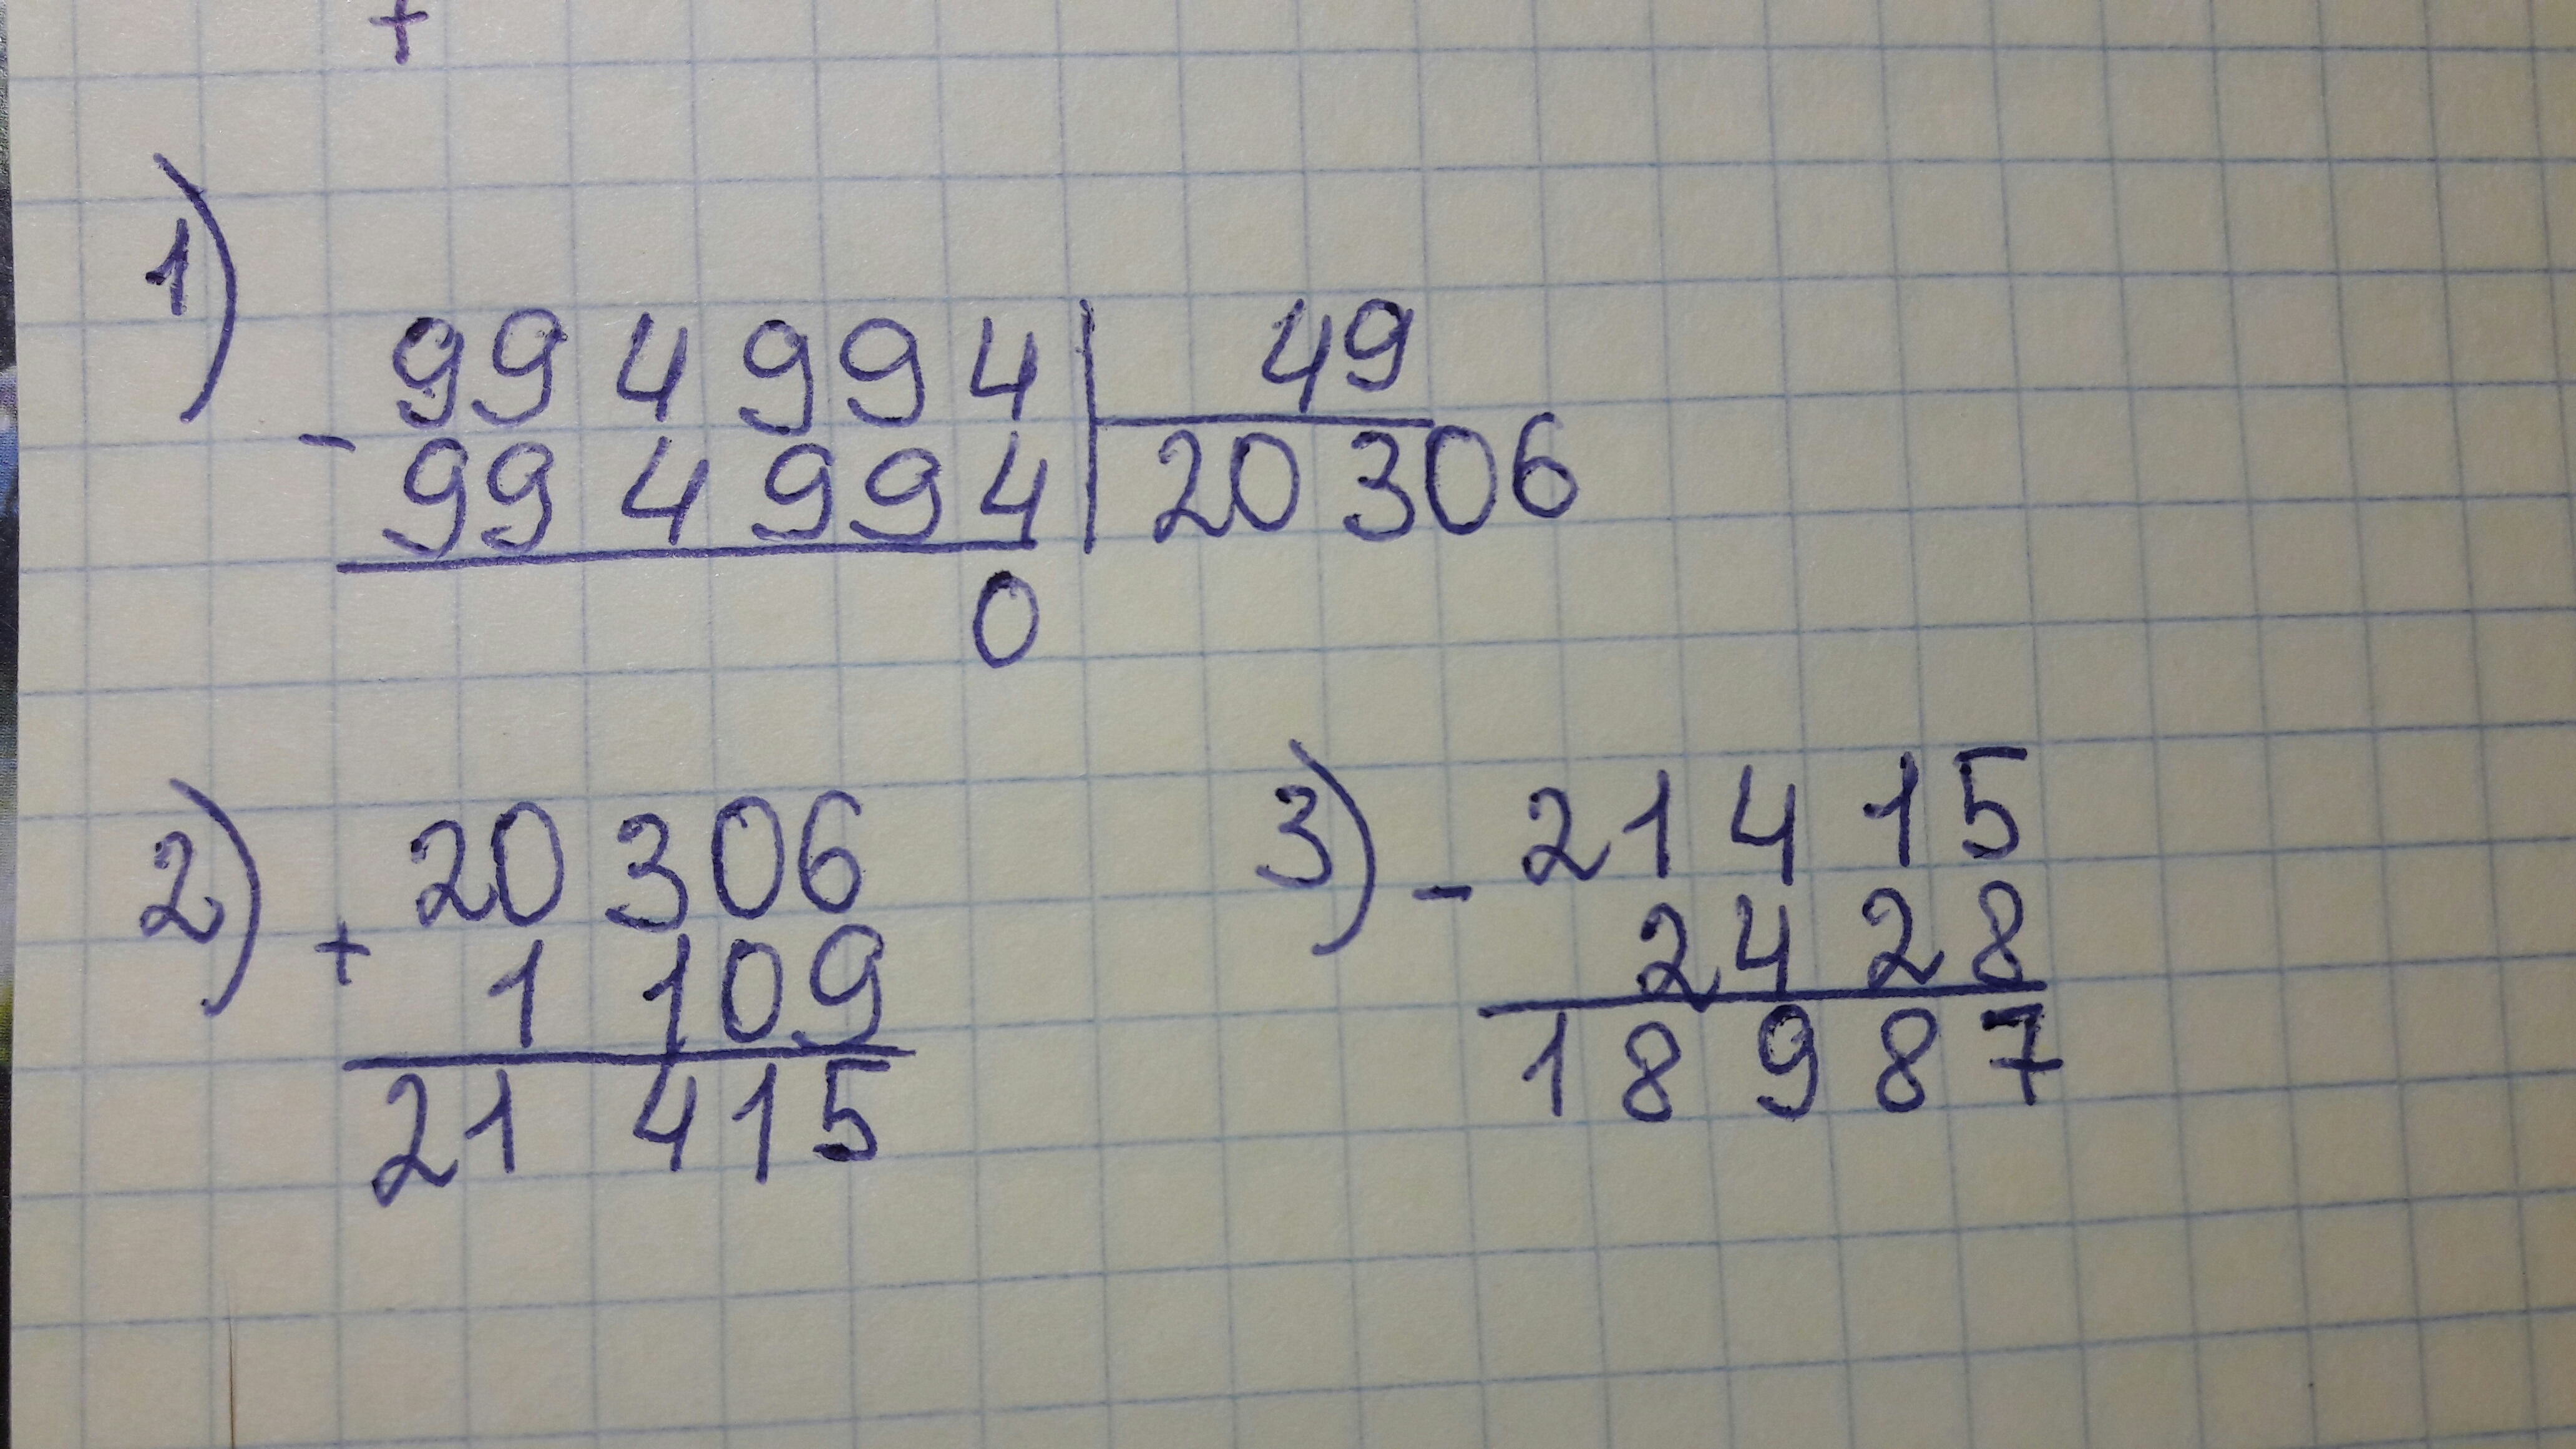 +
1)
994 994 | 49
- 994 994 | 20 306
0
2) 20 306
+ 1 109
21 415
3) - 21 415
2 4 28
18 9 87